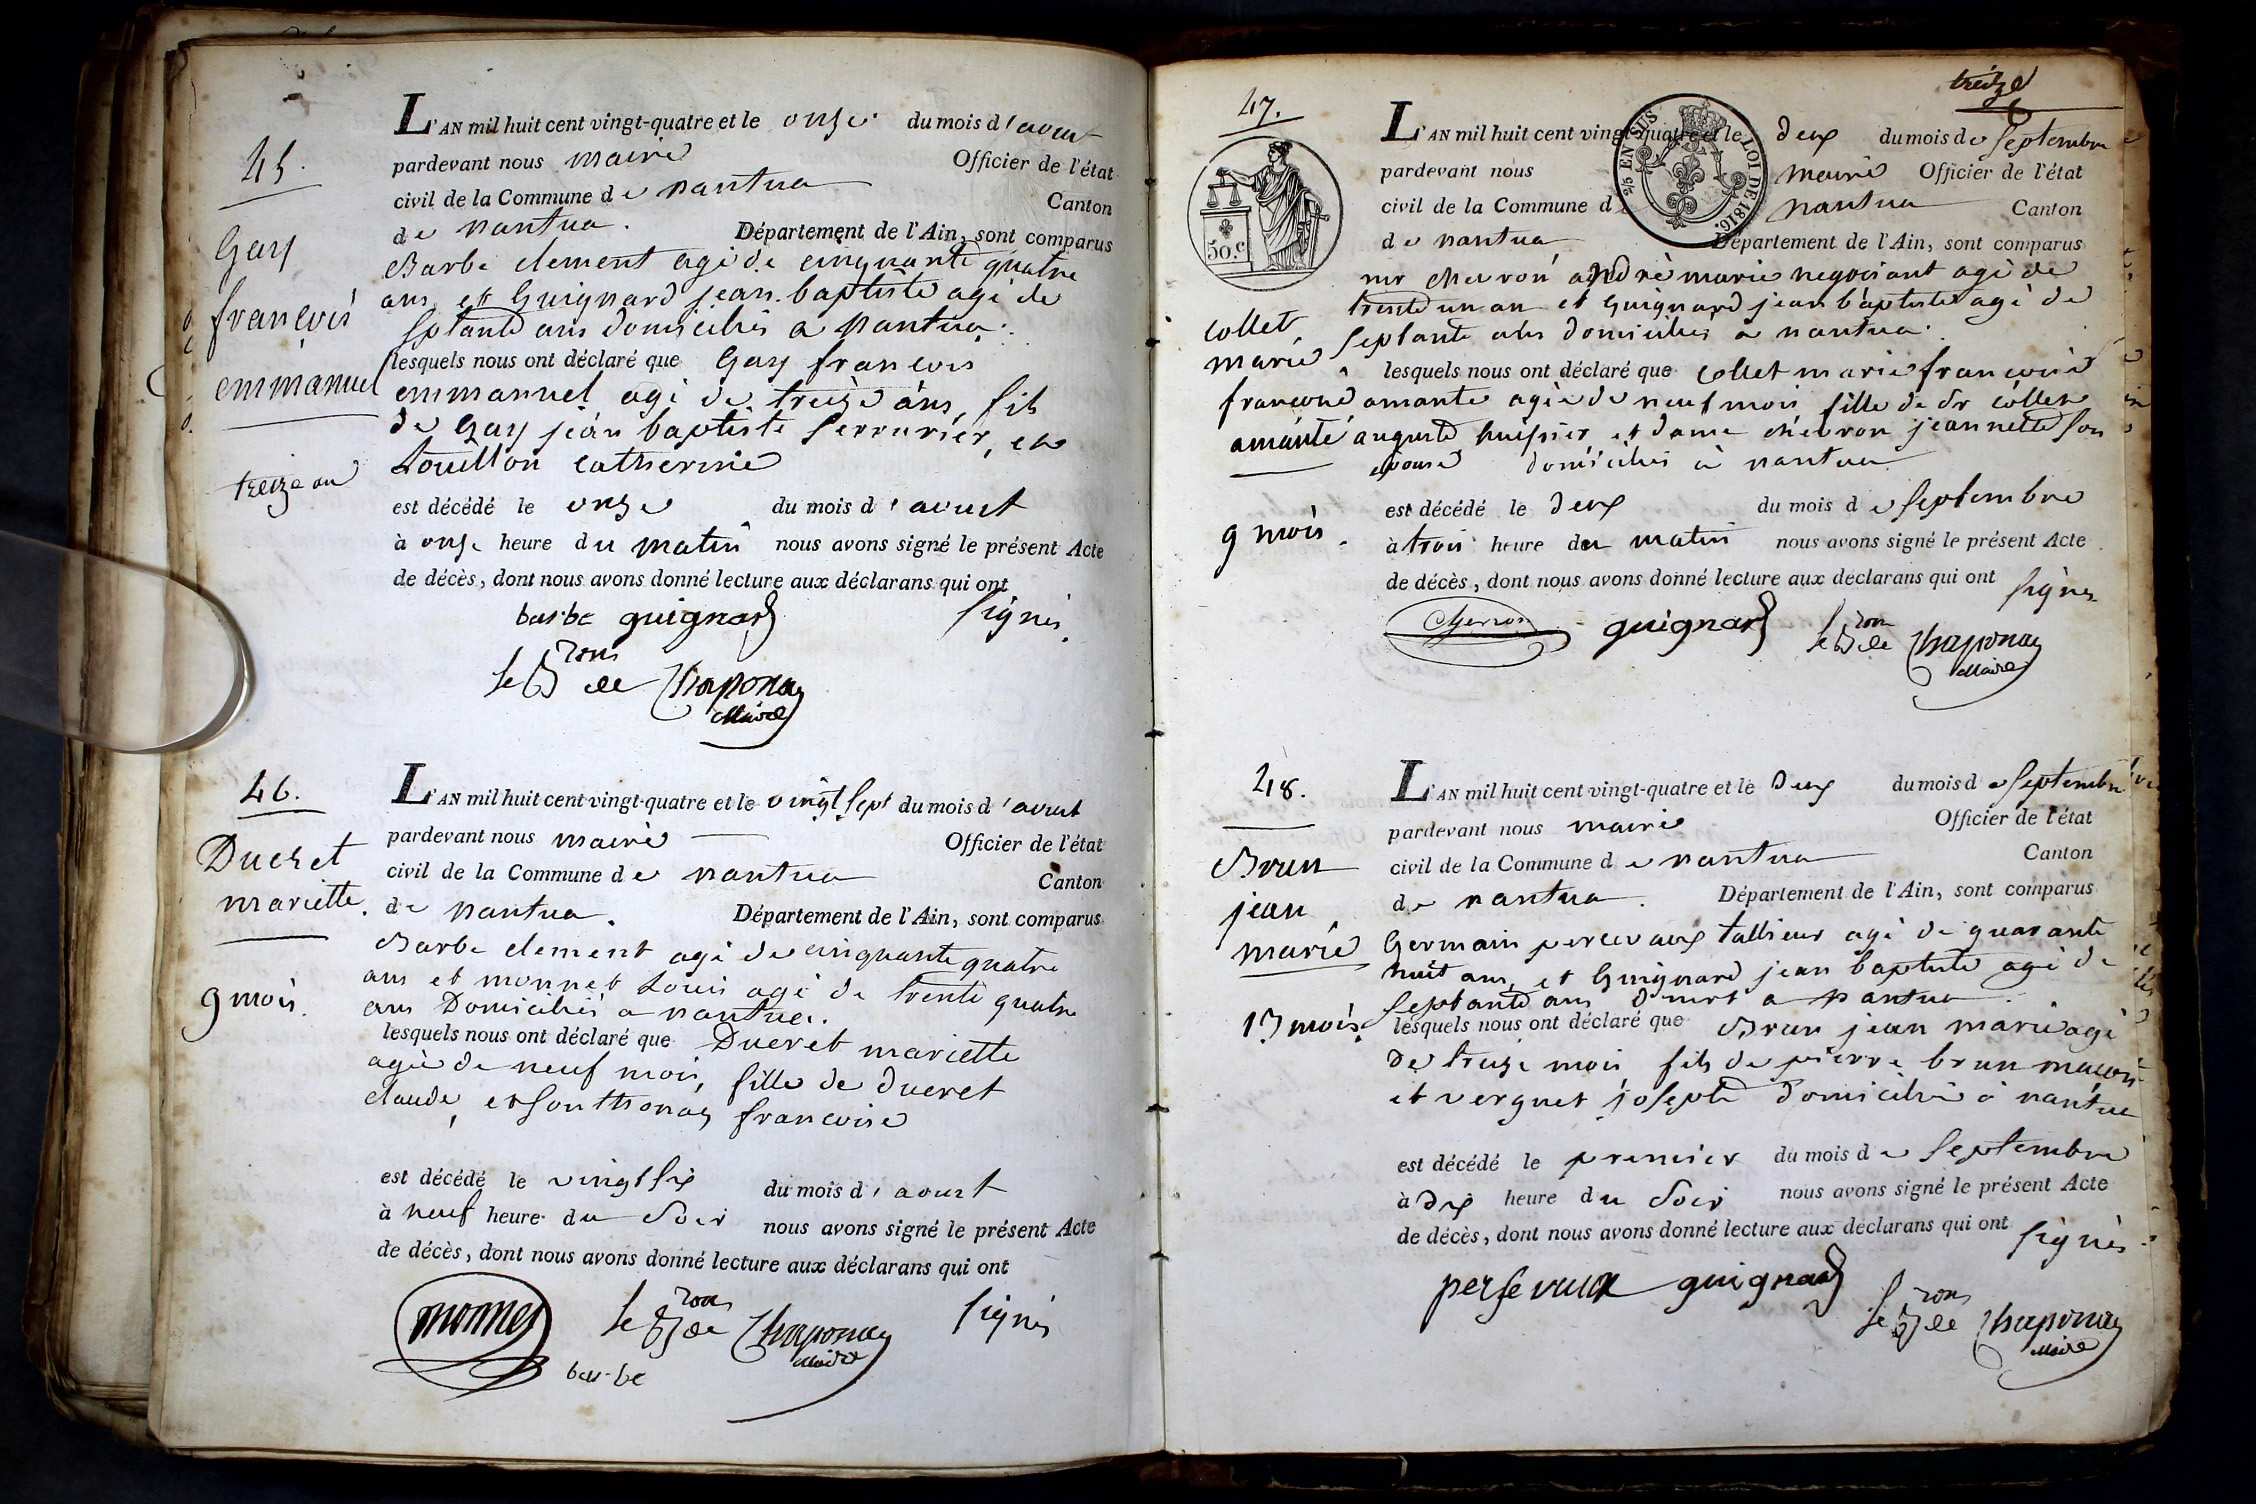 45.
Gay
françois
emmanuel
treize an
L'AN mil huit cent vingt-quatre et le onze du mois d'aoust
pardevant nous maire Officier de l'état
civil de la Commune de nantua Canton
de nantua. Département de l'Ain, sont comparus
Barbe clement agé de cinquante quatre
ans et Guignard jean baptiste agé de
septante ans domiciliés a nantua.
lesquels nous ont déclaré que Gay françois
emmanuel agé de treize ans, fils
de Gay jean baptiste serrurier, et
catherine
est décédé le onze du mois d'aoust
à onze heure du matin nous avons signé le présent Acte
de décès, dont nous avons donné lecture aux déclarans qui ont
signés.
barbe guignard
le Bron de Chaponay
Maire
46.
Ducret
mariette.
9 mois.
L'AN mil huit cent vingt-quatre et le vingt sept du mois d'aoust
pardevant nous maire Officier de l'état
civil de la Commune de nantua Canton
de nantua. Département de l'Ain, sont comparus
Barbe clement agé de cinquante quatre
ans et monnet Louis agé de trente quatre
ans Domiciliés a nantua.
lesquels nous ont déclaré que Ducret mariette
agée de neuf mois, fille de ducret
claude, et françoise
est décédé le vingt six du mois d'aoust
à neuf heure du soir nous avons signé le présent Acte
de décès, dont nous avons donné lecture aux déclarans qui ont
signés
monnet
le Bron de Chaponay
Maire
barbe
treize
47.
50.c
2/5 EN SUS LOI DE 1816.
collet
marie
françoise
amante
9 mois.
L'AN mil huit cent vingt-quatre et le deux du mois de septembre
pardevant nous maire Officier de l'état
civil de la Commune de nantua Canton
de nantua Département de l'Ain, sont comparus
mr chevron andré marie negociant agé de
trente un an et Guignard jean baptiste agé de
septante ans domiciliés a nantua.
lesquels nous ont déclaré que collet marie françoise
amante agée de neuf mois fille de Sr collet
auguste huissier et dame chevron jeannette son
epouse domiciliés à nantua
est décédé le deux du mois de septembre
à trois heure du matin nous avons signé le présent Acte
de décès, dont nous avons donné lecture aux déclarans qui ont signés
Chevron guignard le Bron de Chaponay
Maire
48.
Brun
jean
marie
13 mois.
L'AN mil huit cent vingt-quatre et le Deux du mois de septembre
pardevant nous maire Officier de l'état
civil de la Commune de nantua Canton
de nantua. Département de l'Ain, sont comparus
Germain percevaux tallieur agé de quarante
huit ans, et Guignard jean baptiste agé de
septante ans a nantua.
lesquels nous ont déclaré que Brun jean marie agé
De treize mois fils de pierre brun maçon
et verguet josepte domiciliés à nantua
est décédé le premier du mois de septembre
à dix heure du soir nous avons signé le présent Acte
de décès, dont nous avons donné lecture aux déclarans qui ont signés.
persevaux guignard
le Bron de Chaponay
Maire